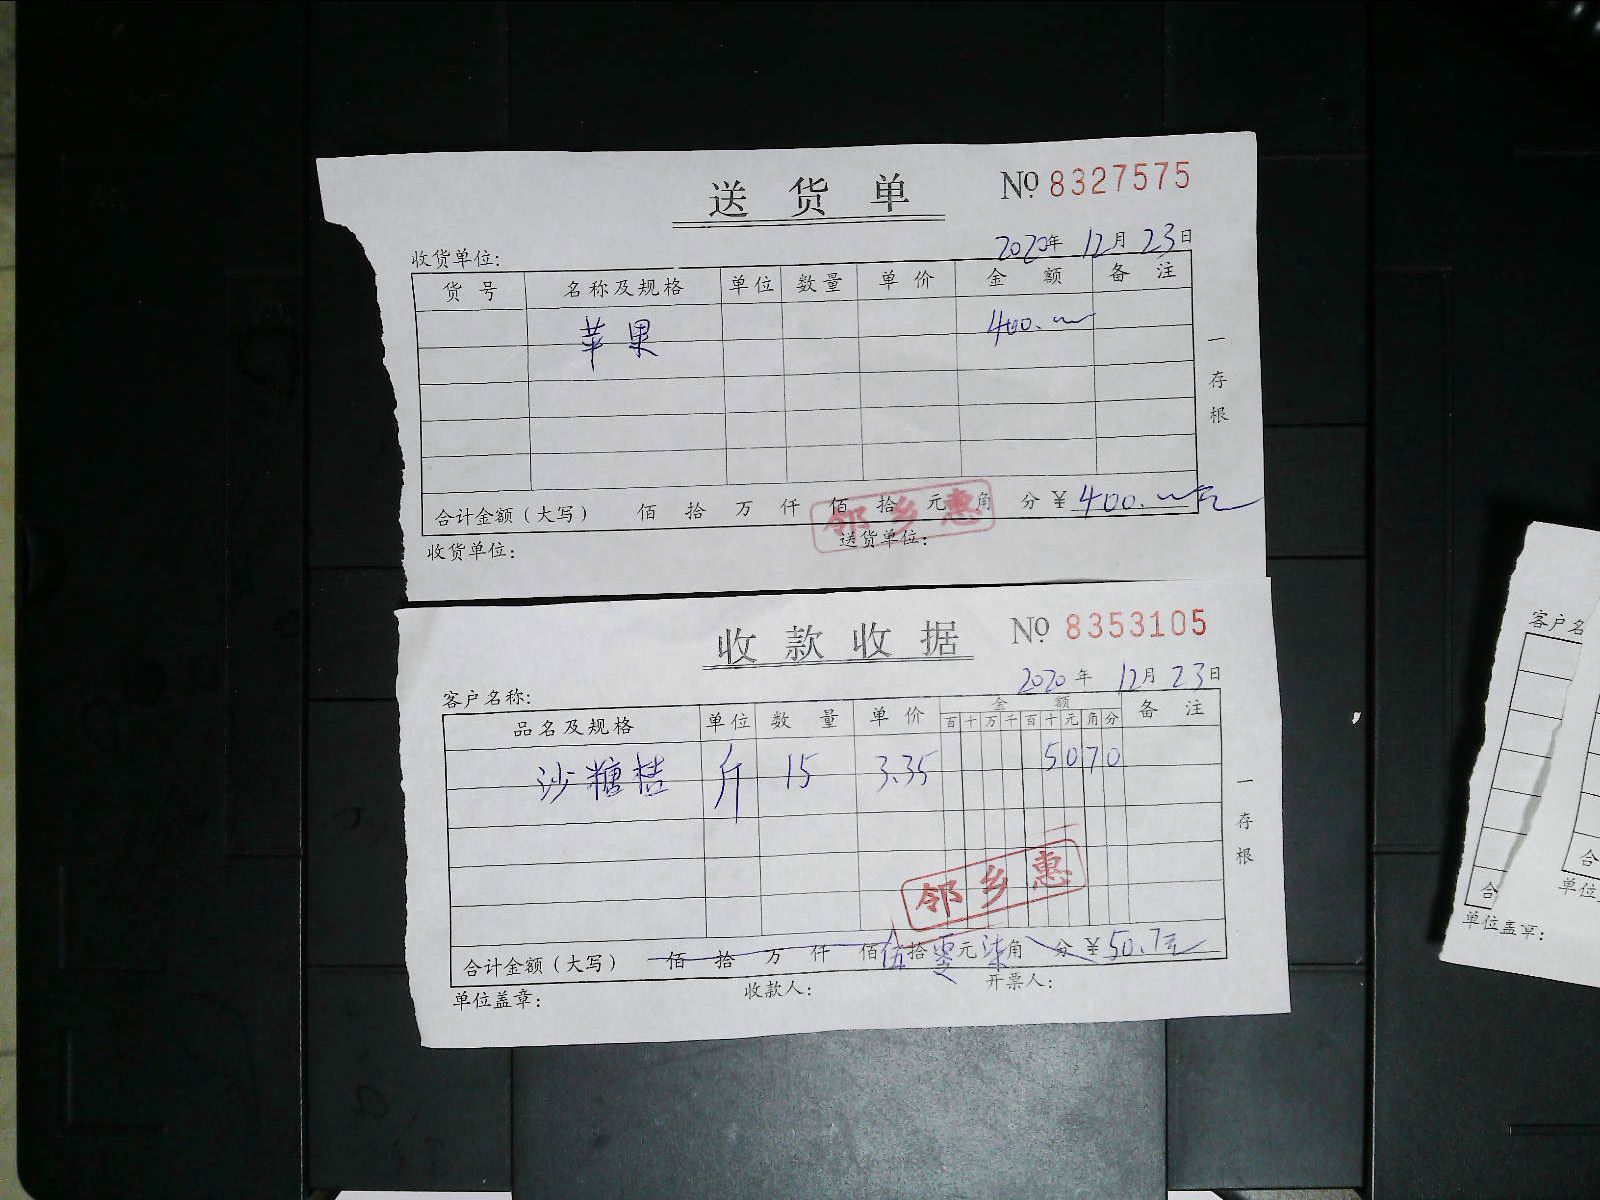 送货单 № 8327575
收货单位: 2020年 12月 23日
货号 名称及规格 单位 数量 单价 金额 备注
苹果 400.
合计金额（大写） 佰 拾 万 仟 佰 拾 元 角 分 ¥ 400. 元
邻乡惠
收货单位: 送货单位:
一存根
收款收据 № 8353105
2020年 12月 23日
客户名称:
品名及规格 单位 数量 单价 金额 备注
百 十 万 千 百 十 元 角 分
沙糖桔 斤 15 3.35 5070
邻乡惠
合计金额（大写） 佰 拾 万 仟 佰 伍拾 零元 柒角 分 ¥ 50.7元
单位盖章: 收款人: 开票人:
一存根
客户名
合
单位盖章:
合
单位